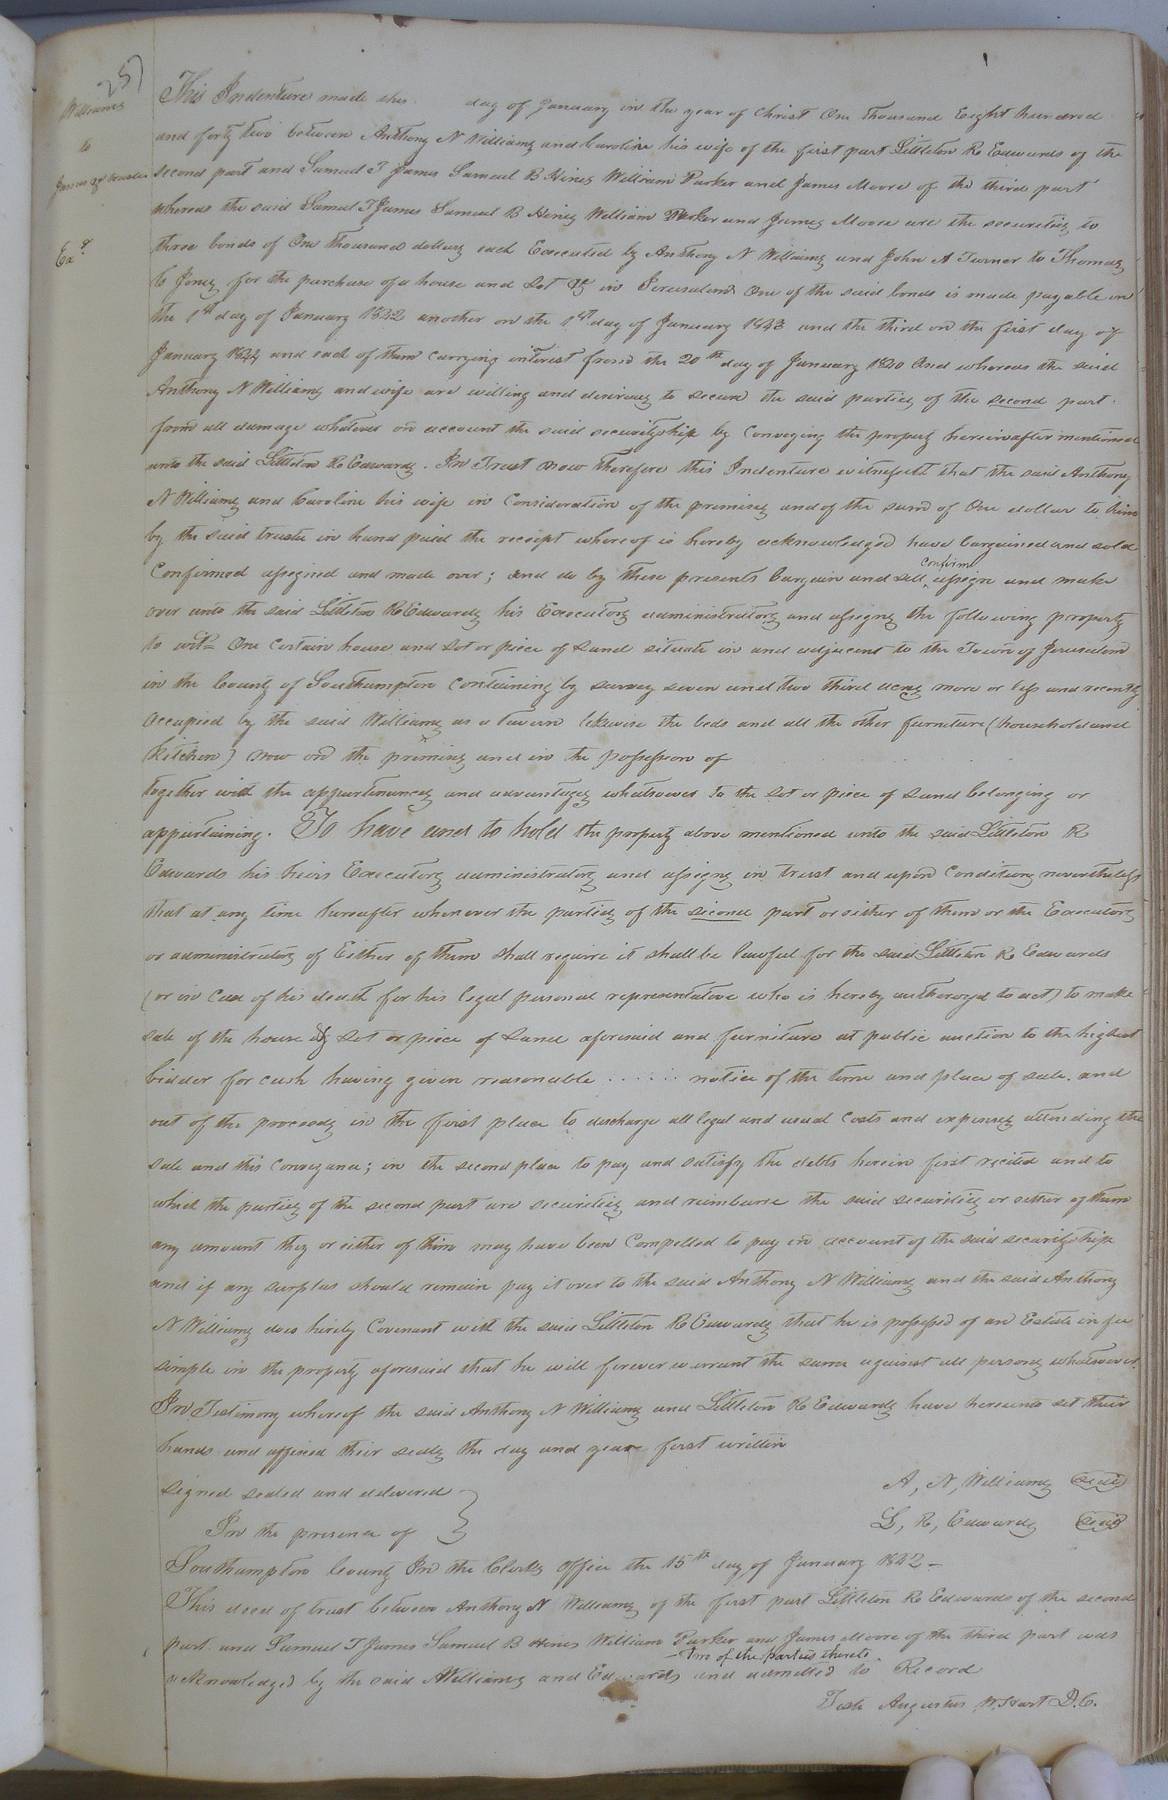 257
Williams
to
James &c Trustee
Exd
This Indenture made this day of January in the year of Christ One thousand Eight hundred
and forty two between Anthony N Williams and Caroline his wife of the first part Littleton R Edwards of the
second part and Samuel T James Samuel B Hines William Parker and James Moore of the third part
whereas the said Samuel T James Samuel B Hines William Parker and James Moore are the securities to
three bonds of One thousand dollars each Executed by Anthony N Williams and John A Turner to Thomas
C Jones for the purchase of a house and Lot &c in Jerusalem One of the said bonds is made payable on
the 1st day of January 1842 another on the 1st day of January 1843 and the third on the first day of
January 1844 and each of them carrying interest from the 20th day of January 1840 And whereas the said
Anthony N Williams and wife are willing and desirous to secure the said parties of the second part
from all damage whatever on account the said securityship by Conveying the property hereinafter mentioned
unto the said Littleton R Edwards. In Trust now Therefore this Indenture witnesseth that the said Anthony
N Williams and Caroline his wife in Consideration of the premises and of the sum of One dollar to him
by the said trustee in hand paid the receipt whereof is hereby acknowledged have bargained and sold
Confirmed assigned and made over; and do by these presents bargain and sell confirm assign and make
over unto the said Littleton R Edwards his Executors administrators and assigns the following property
to wit= One Certain house and Lot or piece of Land situate in and adjacent to the Town of Jerusalem
in the County of Southampton Containing by survey seven and two third acres more or less and recently
Occupied by the said Williams as a tavern likewise the beds and all the other furniture (household and
kitchen) now on the premises and in the possession of
together with the appurtenances and advantages whatsoever to the Lot or piece of Land belonging or
appertaining. To have and to hold the property above mentioned unto the said Littleton R
Edwards his heirs Executors administrators and assigns in trust and upon Conditions nevertheless
that at any time hereafter whenever the parties of the second part or either of them or the Executors
or administrators of Either of them shall require it shall be lawful for the said Littleton R Edwards
(or in Case of his death for his legal personal representative who is hereby authorized to act) to make
sale of the house & Lot or piece of Land aforesaid and furniture at public auction to the highest
bidder for cash having given reasonable ...... notice of the time and place of sale. and
out of the proceeds in the first place to discharge all legal and usual Costs and expenses attending the
sale and this Conveyance; in the second place to pay and satisfy the debts herein first recited and to
which the parties of the second part are securities and reimburse the said securities or either of them
any amount they or either of them may have been Compelled to pay on account of the said securityship
and if any surplus should remain pay it over to the said Anthony N Williams and the said Anthony
N Williams does hereby Covenant with the said Littleton R Edwards that he is possessed of an Estate in fee
simple in the property aforesaid that he will forever warrant the same against all persons whatsoever.
In Testimony whereof the said Anthony N Williams and Littleton R Edwards have hereunto set their
hands and affixed their seals the day and year first written
signed sealed and delivered
In the presence of
A, N, Williams (seal)
L, R, Edwards (seal)
Southampton County In the Clerks Office the 15th day of January 1842 –
This deed of trust between Anthony N Williams of the first part Littleton R Edwards of the second
part and Samuel T James Samuel B Hines William Parker and James Moore of the third part was
acknowledged by the said Williams and Edwards two of the parties thereto and admitted to Record
Teste Augustus W. Hart D.C.